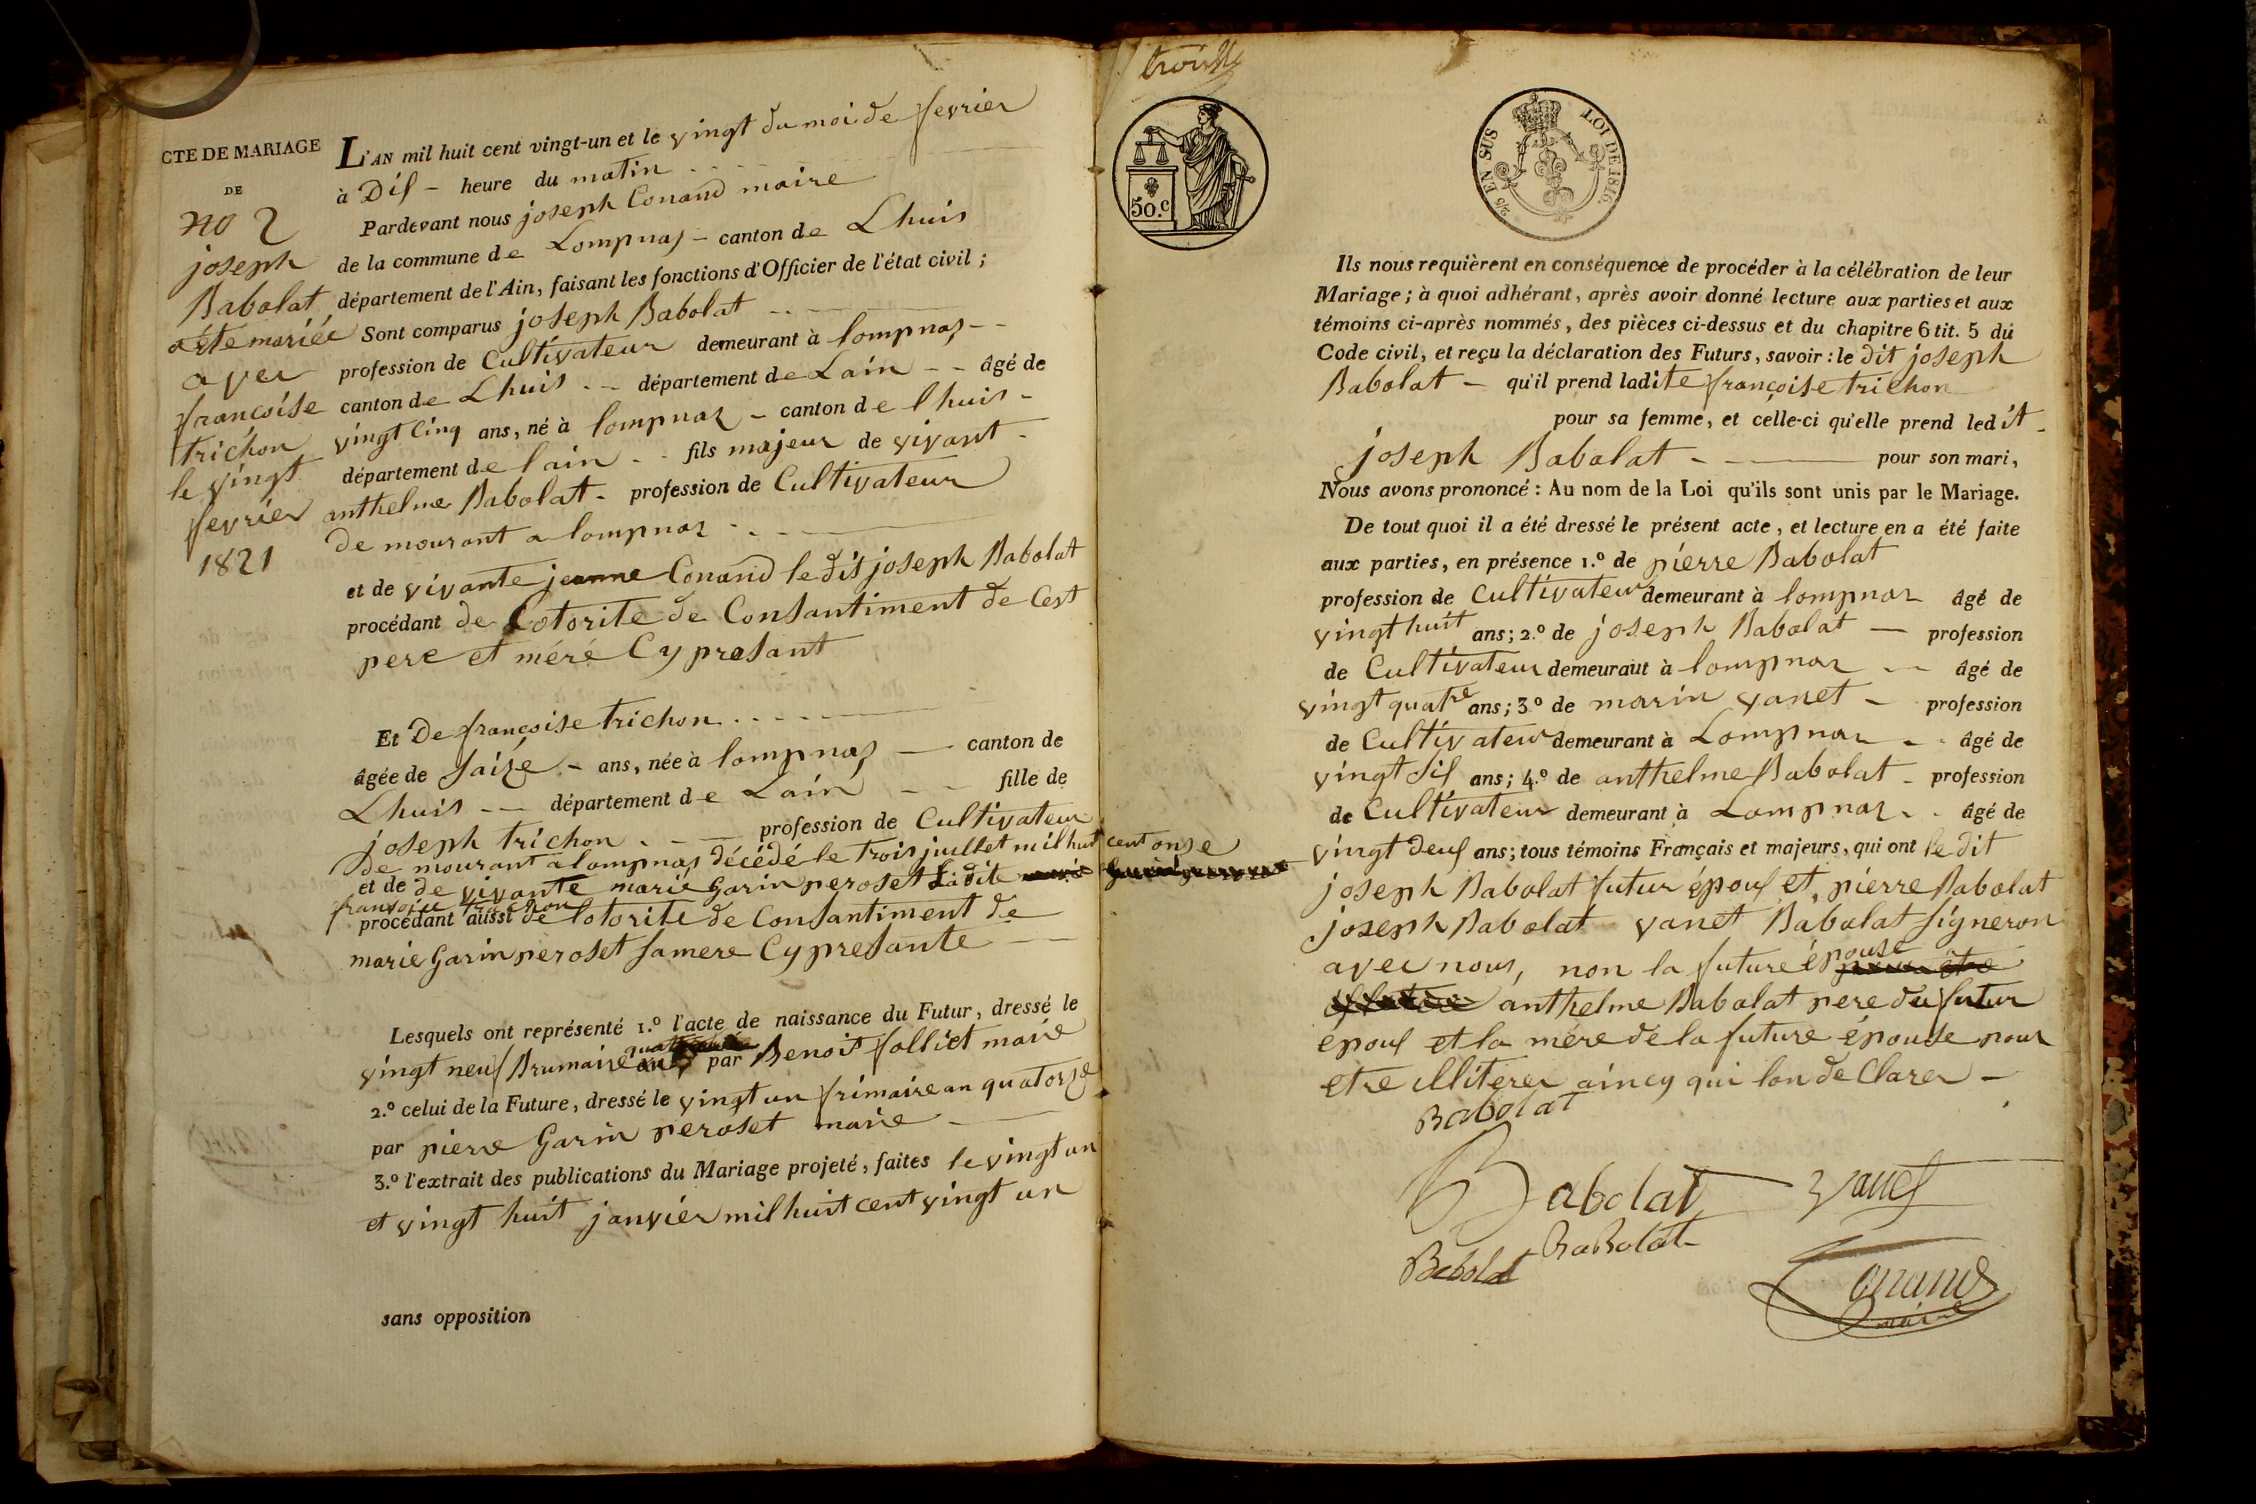 CTE DE MARIAGE
DE
no 2
joseph
Babolat
a été mariée
avec
françoise
trichon
le vingt
fevrier
1821
L'AN mil huit cent vingt-un et le vingt du moi de fevrier
à Dis - heure du matin
Pardevant nous joseph Conand maire
de la commune de Lompnas - canton de Lhuis
département de l'Ain, faisant les fonctions d'Officier de l'état civil ;
Sont comparus joseph Babolat
profession de Cultivateur demeurant à lompnas
canton de Lhuis département de Lain âgé de
vingt Cinq ans, né à lompnaz - canton de lhuis
département de lain fils majeur de vivant
anthelme Babolat - profession de Cultivateur
de mourant a lompnaz
et de vivante jeanne Conand le dit joseph Babolat
procédant de Lotorite de Consantiment de Cest
pere et mére Cy presant
Et De françoise trichon
âgée de Saize - ans, née à lompnas canton de
Lhuis département de Lain fille de
joseph trichon profession de Cultivateur
De mourant a lompnas décédé le trois juillet mil huit cent onze
et de de vivante marie Garin peroset Ladite
fransoise trichon
procédant aussi de lotorite de Consantiment de
marie Garin peroset Samere Cy presante
Lesquels ont représenté 1.º l'acte de naissance du Futur, dressé le
vingt neuf Brumaire par Benoit folliet maire
2.º celui de la Future, dressé le vingt un frimaire an quatorze
par pierre Garin peroset maire
3.º l'extrait des publications du Mariage projeté, faites le vingt un
et vingt huit janvier mil huit cent vingt un
sans opposition
50.c
2/5 EN SUS LOI DE 1816.
Ils nous requièrent en conséquence de procéder à la célébration de leur
Mariage ; à quoi adhérant, après avoir donné lecture aux parties et aux
témoins ci-après nommés, des pièces ci-dessus et du chapitre 6 tit. 5 du
Code civil, et reçu la déclaration des Futurs, savoir : le dit joseph
Babolat - qu'il prend ladite françoise trichon
pour sa femme, et celle-ci qu'elle prend ledit
joseph Babolat - pour son mari,
Nous avons prononcé : Au nom de la Loi qu'ils sont unis par le Mariage.
De tout quoi il a été dressé le présent acte, et lecture en a été faite
aux parties, en présence 1.º de pierre Babolat
profession de Cultivateur demeurant à lompnaz âgé de
vingt huit ans ; 2.º de joseph Babolat - profession
de Cultivateur demeurant à lompnaz âgé de
vingt quatre ans ; 3.º de marin vanet - profession
de Cultivateur demeurant à Lompnaz âgé de
vingt Sis ans ; 4.º de anthelme Babolat - profession
de Cultivateur demeurant à Lompnaz âgé de
vingt deus ans ; tous témoins Français et majeurs, qui ont le dit
joseph Babolat futur épous et pierre Babolat
joseph Babolat vanet Babolat Signeron
avec nous, non la future épouse
anthelme Babolat pere du futur
epous et la mére de la future épouse pour
etre illiterer aincy qui lon de Clarer -
Babolat
Babolat vanet
BaBolat
Babolat
Conand
maire